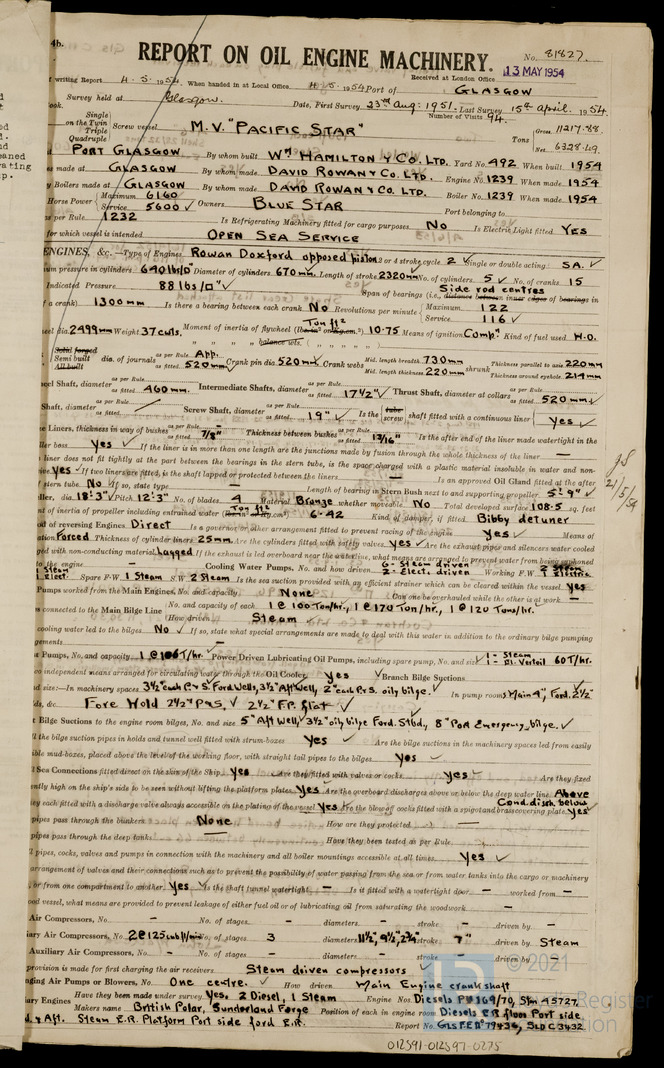 4b.
REPORT ON OIL ENGINE MACHINERY.
No. 81827.
13 MAY 1954
writing Report 4.5.1954. When handed in at Local Office 4.5.1954 Port of GLASGOW
Received at London Office
Survey held at Glasgow. Date, First Survey 23rd Aug: 1951. Last Survey 15th April. 1954
Number of Visits 94.
Single
on the Twin
Triple
Quadruple
Screw vessel M.V. "PACIFIC STAR"
Tons
Gross 11217.88
Net 6328.49
PORT GLASGOW By whom built WM HAMILTON & CO. LTD. Yard No. 492 When built 1954
s made at GLASGOW By whom made DAVID ROWAN & CO. LTD. Engine No. 1239 When made 1954
Boilers made at GLASGOW By whom made DAVID ROWAN & CO. LTD. Boiler No. 1239 When made 1954
Horse Power Maximum 6160
Service 5600 Owners BLUE STAR Port belonging to
as per Rule 1232 Is Refrigerating Machinery fitted for cargo purposes No Is Electric Light fitted YES
for which vessel is intended. OPEN SEA SERVICE
ENGINES, &c.—Type of Engines Rowan Doxford opposed piston 2 or 4 stroke cycle 2 Single or double acting SA.
um pressure in cylinders 640 lbs/□" Diameter of cylinders 670 mm. Length of stroke 2320 mm No. of cylinders 5 No. of cranks 15
Indicated Pressure 88 lbs/□" Span of bearings (i.e., distance between inner edges of bearings in Side rod centres
f a crank) 1300 mm Is there a bearing between each crank No Revolutions per minute Maximum 122
Service 116
eel dia. 2499 mm Weight 37 cwts. Moment of inertia of flywheel Ton ft² 10.75 Means of ignition Comp. Kind of fuel used H.O.
balance wts.
Solid forged
Semi built
All built
dia. of journals as per Rule App. as fitted 520 mm Crank pin dia. 520 mm Crank webs Mid. length breadth 730 mm Mid. length thickness 220 mm shrunk Thickness parallel to axis 220 mm Thickness around eyehole 214 mm
eel Shaft, diameter as per Rule as fitted 460 mm. Intermediate Shafts, diameter as per Rule as fitted 17½" Thrust Shaft, diameter at collars as per Rule as fitted 520 mm
Shaft, diameter as per Rule as fitted Screw Shaft, diameter as per Rule as fitted 19" Is the tube screw shaft fitted with a continuous liner Yes
e Liners, thickness in way of bushes as per Rule as fitted 7/8" Thickness between bushes as per Rule as fitted 13/16" Is the after end of the liner made watertight in the
ller boss Yes If the liner is in more than one length are the junctions made by fusion through the whole thickness of the liner —
liner does not fit tightly at the part between the bearings in the stern tube, is the space charged with a plastic material insoluble in water and non-
ive Yes If two liners are fitted, is the shaft lapped or protected between the liners — Is an approved Oil Gland fitted at the after
f stern tube. No If so, state type — Length of bearing in Stern Bush next to and supporting propeller 5'.9"
ller, dia. 18'.3" Pitch 12'.3" No. of blades 4 Material Bronze whether moveable No Total developed surface 108.5 sq. feet
nt of inertia of propeller including entrained water Ton ft² 6.42 Kind of damper, if fitted Bibby detuner
od of reversing Engines Direct Is a governor or other arrangement fitted to prevent racing of the engine Yes Means of
ation Forced Thickness of cylinder liners 25mm. Are the cylinders fitted with safety valves Yes Are the exhaust pipes and silencers water cooled
ged with non-conducting material Lagged If the exhaust is led overboard near the waterline, what means are arranged to prevent water from being syphoned
to the engine — Cooling Water Pumps, No. and how driven 6- Steam driven 2- Elect. driven Working F.W. 2 Steam 1 Electric
1 Steam 1 Elect. Spare F.W. 1 Steam S.W. 2 Steam Is the sea suction provided with an efficient strainer which can be cleared within the vessel Yes
Pumps worked from the Main Engines, No. and capacity None Can one be overhauled while the other is at work —
s connected to the Main Bilge Line No. and capacity of each 1 @ 100 Ton/hr., 1 @ 170 Ton/hr., 1 @ 120 Tons/hr.
How driven Steam
cooling water led to the bilges No If so, state what special arrangements are made to deal with this water in addition to the ordinary bilge pumping
gements —
st Pumps, No. and capacity 1 @ 106 T/hr. Power Driven Lubricating Oil Pumps, including spare pump, No. and size 1 - Steam 1 - El. Vertoil 60T/hr.
wo independent means arranged for circulating water through the Oil Cooler Yes Branch Bilge Suctions
nd size:—In machinery spaces 3½" each P & S Ford Wells, 3½" Aft Well, 2" each P & S. oily bilge. In pump room 3 Main 4", Ford. 2½"
lds, &c. Fore Hold 2½" P & S, 2½" F.P. flat
t Bilge Suctions to the engine room bilges, No. and size 5" Aft Well, 3½" oily bilge Ford. Stbd., 8" Port Emergency bilge.
ll the bilge suction pipes in holds and tunnel well fitted with strum-boxes Yes Are the bilge suctions in the machinery spaces led from easily
ible mud-boxes, placed above the level of the working floor, with straight tail pipes to the bilges Yes
ll Sea Connections fitted direct on the skin of the Ship Yes Are they fitted with valves or cocks Yes Are they fixed
ently high on the ship's side to be seen without lifting the platform plates Yes Are the overboard discharges above or below the deep water line Above Cond. disch. below
ey each fitted with a discharge valve always accessible on the plating of the vessel Yes Are the blow off cocks fitted with a spigot and brass covering plate Yes
ipes pass through the bunkers None How are they protected —
pipes pass through the deep tanks — Have they been tested as per Rule
l pipes, cocks, valves and pumps in connection with the machinery and all boiler mountings accessible at all times Yes
arrangement of valves and their connections such as to prevent the possibility of water passing from the sea or from water tanks into the cargo or machinery
, or from one compartment to another Yes Is the shaft tunnel watertight — Is it fitted with a watertight door — worked from —
ood vessel, what means are provided to prevent leakage of either fuel oil or of lubricating oil from saturating the woodwork —
Air Compressors, No. — No. of stages — diameters — stroke — driven by —
iary Air Compressors, No. 2 @ 125 cub ft/min No. of stages 3 diameters 11½", 9½", 2¾" stroke 7" driven by Steam
Auxiliary Air Compressors, No. — No. of stages — diameters — stroke — driven by —
provision is made for first charging the air receivers Steam driven compressors
nging Air Pumps or Blowers, No. One centre. How driven Main Engine crankshaft
iary Engines Have they been made under survey Yes. 2 Diesel, 1 Steam Engine Nos. Diesels PU 369/70, Stm 45727
Makers name British Polar, Sunderland Forge Position of each in engine room Diesels E.R. floor Port side
d. & Aft. Steam E.R. Platform Port side ford E.R. Report No. GLS FED° 79436, SLD C3432
JS
21/5/54
© 2021
Register
ion
012591-012597-0275